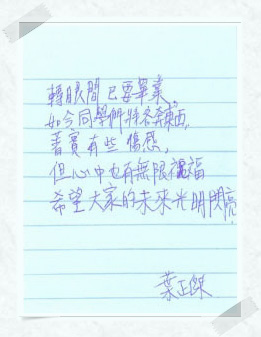 轉眼間已要畢業,
如今同學們將各奔東西,
著實有些傷感,
但心中也有無限祝福
希望大家的未來光明閃亮.
葉正傑